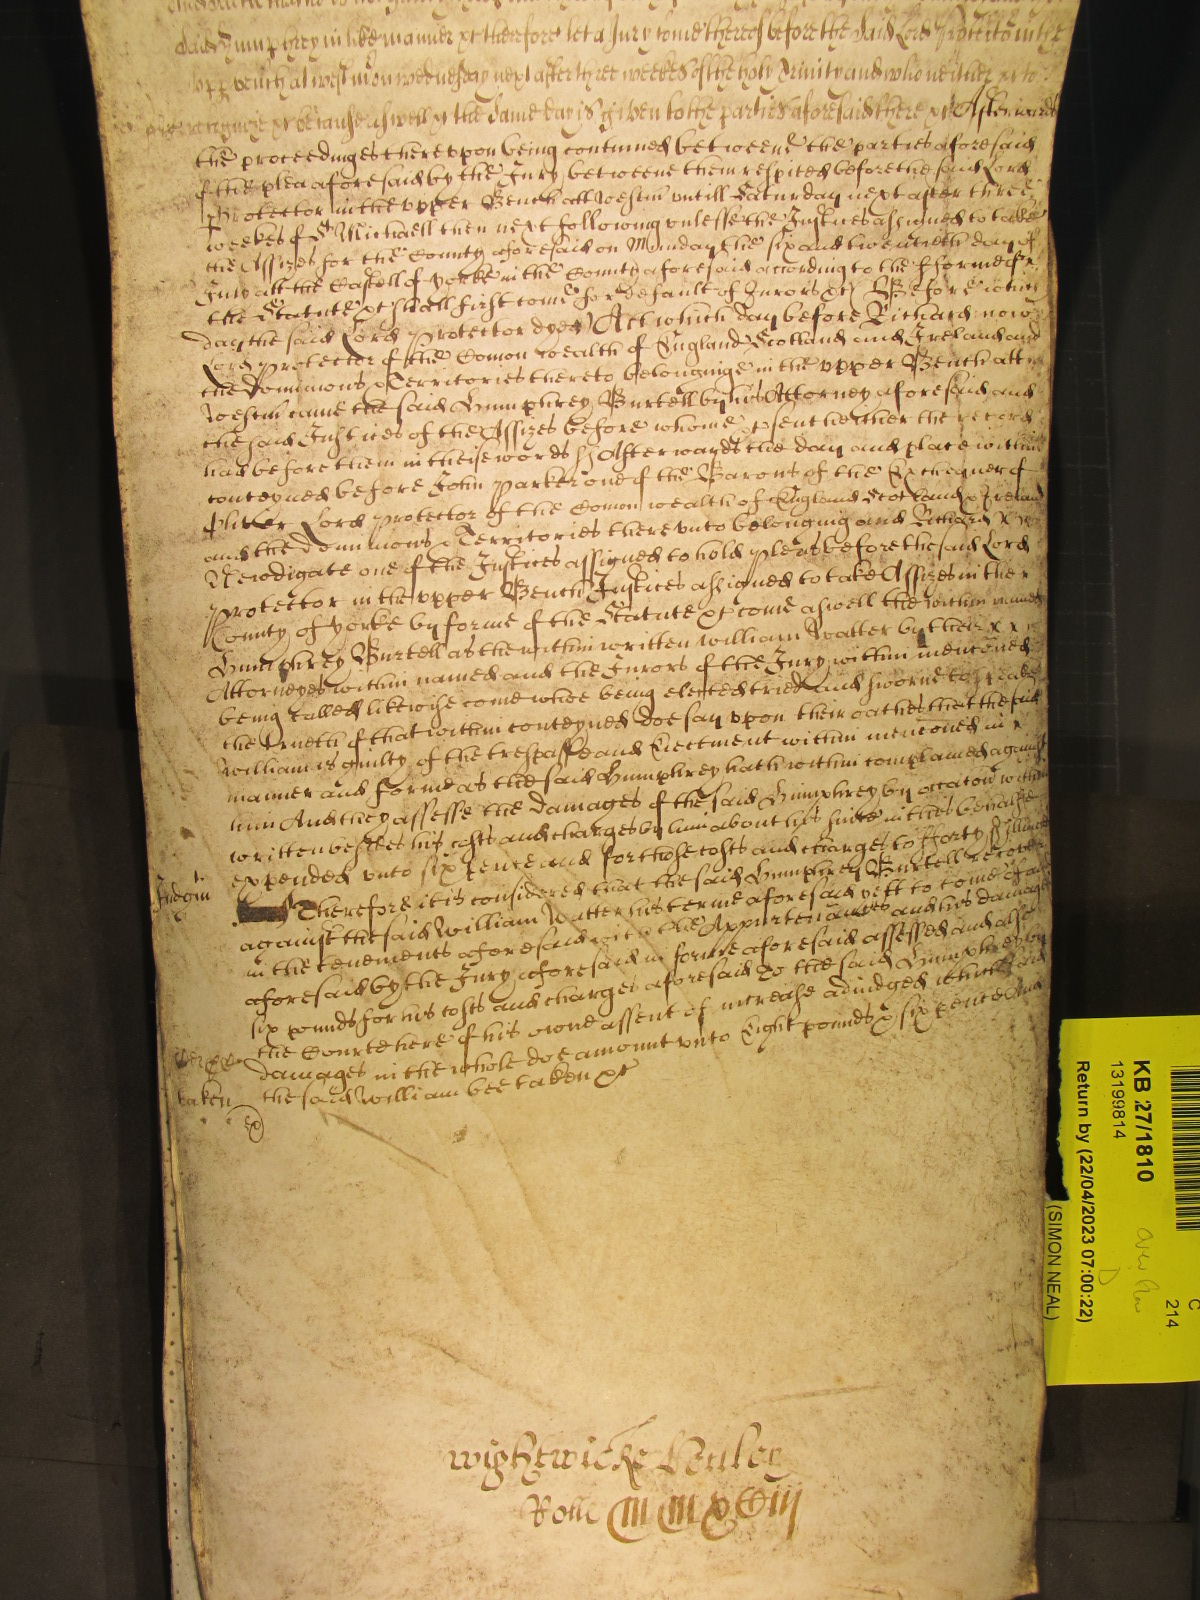 said Humphrey in like manner &c therefore let a Jury come thereof before the said Lord Protector in the
upper bench at westm on wednesday next after three weekes of the holy Trinity and who neither &c to
recognize &c because aswell &c the same day is given to the parties aforesaid there &c Afterwards
the proceedinges thereupon being continued betweene the parties aforesaid
of the plea aforesaid by the Jury betweene them respited before the said Lord
Protector in the upper Bench att westm untill Saturday next after three
weekes of St Michaell then next following unlesse the Justices assigned to take
the Assizes for the County aforesaid on Munday the six and twentieth day of
July att the Castell of Yorke in the County aforesaid according to the forme of
the Statute &c shall first come for default of Jurors &c Before which
day the said Lord Protector dyed Att which day before Richard now
Lord Protector of the Comon wealth of England Scotland and Ireland and
the dominions & Territories thereto belonginge in the upper Bench att
westm came the said Humphrey Burtell by his Attorney aforesaid and
the said Justices of the Assizes before whome &c sent hether the record
had before them in theise words ss Afterwards the day and place within
conteyned before John Parker one of the Barons of the Exchequer of
Oliver Lord Protector of the Comon wealth of England Scotland & Ireland
and the dominions & Territories thereunto belonging and Richard
Newdigate one of the Justices assigned to hold pleas before the said Lord
Protector in the upper Bench Justices assigned to take Assizes in the
County of Yorke by forme of the Statute &c come aswell the within named
Humphrey Burtell as the within written william Watter by their
Attorneyes within named and the Jurors of the Jury within mencioned
being called likewise come whoe being elected tried and sworne to speake
the trueth of that within conteyned doe say upon their oathes that the said
william is guilty of the trespasse and Ejectment within mencioned in
manner and forme as the said Humphrey hath within complained against
him And they assesse the damages of the said Humphrey by occacion within
written besides his costs and charges by him about his suite in this behalfe
expended unto six pence and for those costs and charges to Forty shillings
Judgmt
Therefore it is considered that the said Humphrey Burtell recover
against the said William Watter his terme aforesaid yett to come of and
in the tenements aforesaid with the Appurtenances and his damages
aforesaid by the Jury aforesaid in forme aforesaid assessed and alsoe
six pounds for his costs and charges aforesaid to the said Humphrey by
the Court here of his owne assent of increase adiudged which said
damages in the whole doe amount unto Eight pounds & six pence And
taken
the said william bee taken &c
wightwicke Henley
Rolle MMXViii
KB 27/1810
13199814
Return by (22/04/2023 07:00:22)
(SIMON NEAL)
C
214